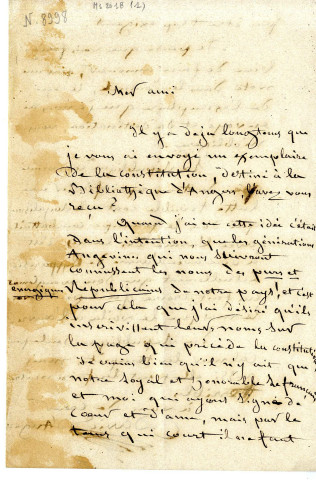 N. 8998
Ms 2018 (2)
Mon ami
Il y a déjà longtems que
je vous ai envoyé un exemplaire
de la constitution, destiné à la
Bibliothèque d'Angers l'avez vous
reçu ?
Quand j'ai eu cette idée c'était
dans l'intention, que les générations
Angevines qui nous suivront
connussent les noms des purs et
énergiques
Républicains de notre pays, et c'est
pour cela que j'ai désiré qu'ils
inscrivissent leurs noms sur
la page qui précède la constitution
Je crains bien qu'il n'y ait que
notre loyal et honorable
et moi qui ayons signé de
cœur et d'ame, mais par le
tems qui court il ne faut